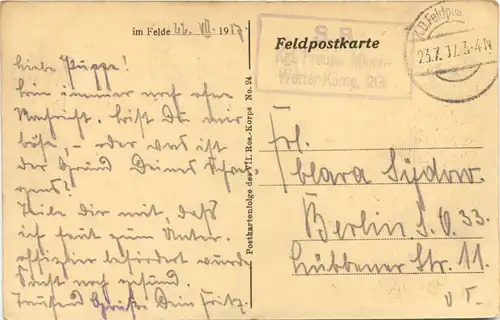 im Felde 22. VII. 1917
Liebe Puppe!
bin immer noch ohne
Nachricht. bist Du mir
böse, – oder was ist
der Grund Deines Schwei
gens?
Teile Dir mit, daß
ich heut zum Unter-
offizier befördert wurde
Sonst noch gesund.
Tausend Grüße Dein Fritz.
Postkartenfolge des VII. Res.-Korps No. 24
S. B.
Kgl. Preuss. Minen-
Werfer-Komp. 213
Feldpostkarte
K.D. Feldpost
23.7.17. 3-4N
Frl.
Clara Sydow.
Berlin S.O. 33.
Lübbener Str. 11.
v I.